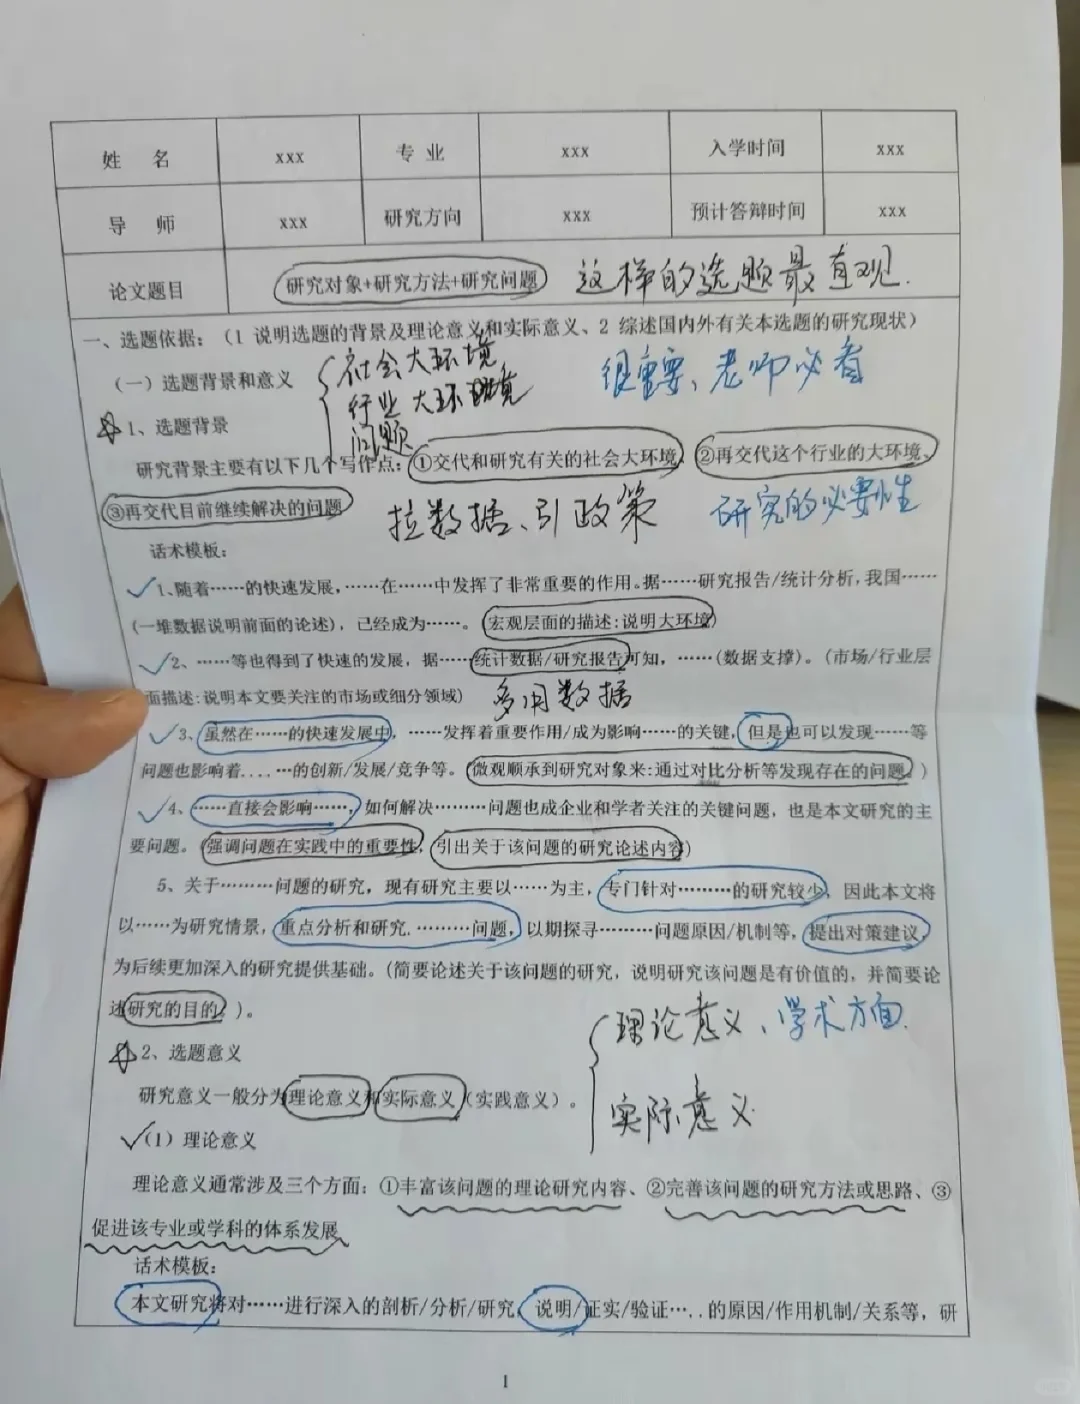 姓 名 xxx 专 业 xxx 入学时间 xxx
导 师 xxx 研究方向 xxx 预计答辩时间 xxx
论文题目 研究对象+研究方法+研究问题 这样的选题最直观.
一、选题依据:(1 说明选题的背景及理论意义和实际意义、2 综述国内外有关本选题的研究现状)
(一)选题背景和意义 社会大环境 很重要、老师必看
行业大环境
1、选题背景 问题
研究背景主要有以下几个写作点:①交代和研究有关的社会大环境、②再交代这个行业的大环境、
③再交代目前继续解决的问题 拉数据、引政策 研究的必要性
话术模板:
1、随着……的快速发展,……在……中发挥了非常重要的作用。据……研究报告/统计分析,我国……
(一堆数据说明前面的论述),已经成为……。(宏观层面的描述:说明大环境)
2、……等也得到了快速的发展,据……统计数据/研究报告可知,……(数据支撑)。(市场/行业层
面描述:说明本文要关注的市场或细分领域) 多用数据
3、虽然在……的快速发展中,……发挥着重要作用/成为影响……的关键,但是也可以发现……等
问题也影响着....…的创新/发展/竞争等。(微观顺承到研究对象来:通过对比分析等发现存在的问题。)
4、……直接会影响……,如何解决………问题也成企业和学者关注的关键问题,也是本文研究的主
要问题。(强调问题在实践中的重要性,引出关于该问题的研究论述内容)
5、关于………问题的研究,现有研究主要以……为主,专门针对………的研究较少,因此本文将
以……为研究情景,重点分析和研究.………问题,以期探寻………问题原因/机制等,提出对策建议,
为后续更加深入的研究提供基础。(简要论述关于该问题的研究,说明研究该问题是有价值的,并简要论
述研究的目的。)。
理论意义、学术方面.
2、选题意义
研究意义一般分为理论意义和实际意义(实践意义)。 实际意义
(1)理论意义
理论意义通常涉及三个方面:①丰富该问题的理论研究内容、②完善该问题的研究方法或思路、③
促进该专业或学科的体系发展
话术模板:
本文研究将对……进行深入的剖析/分析/研究,说明/证实/验证…..的原因/作用机制/关系等,研
1